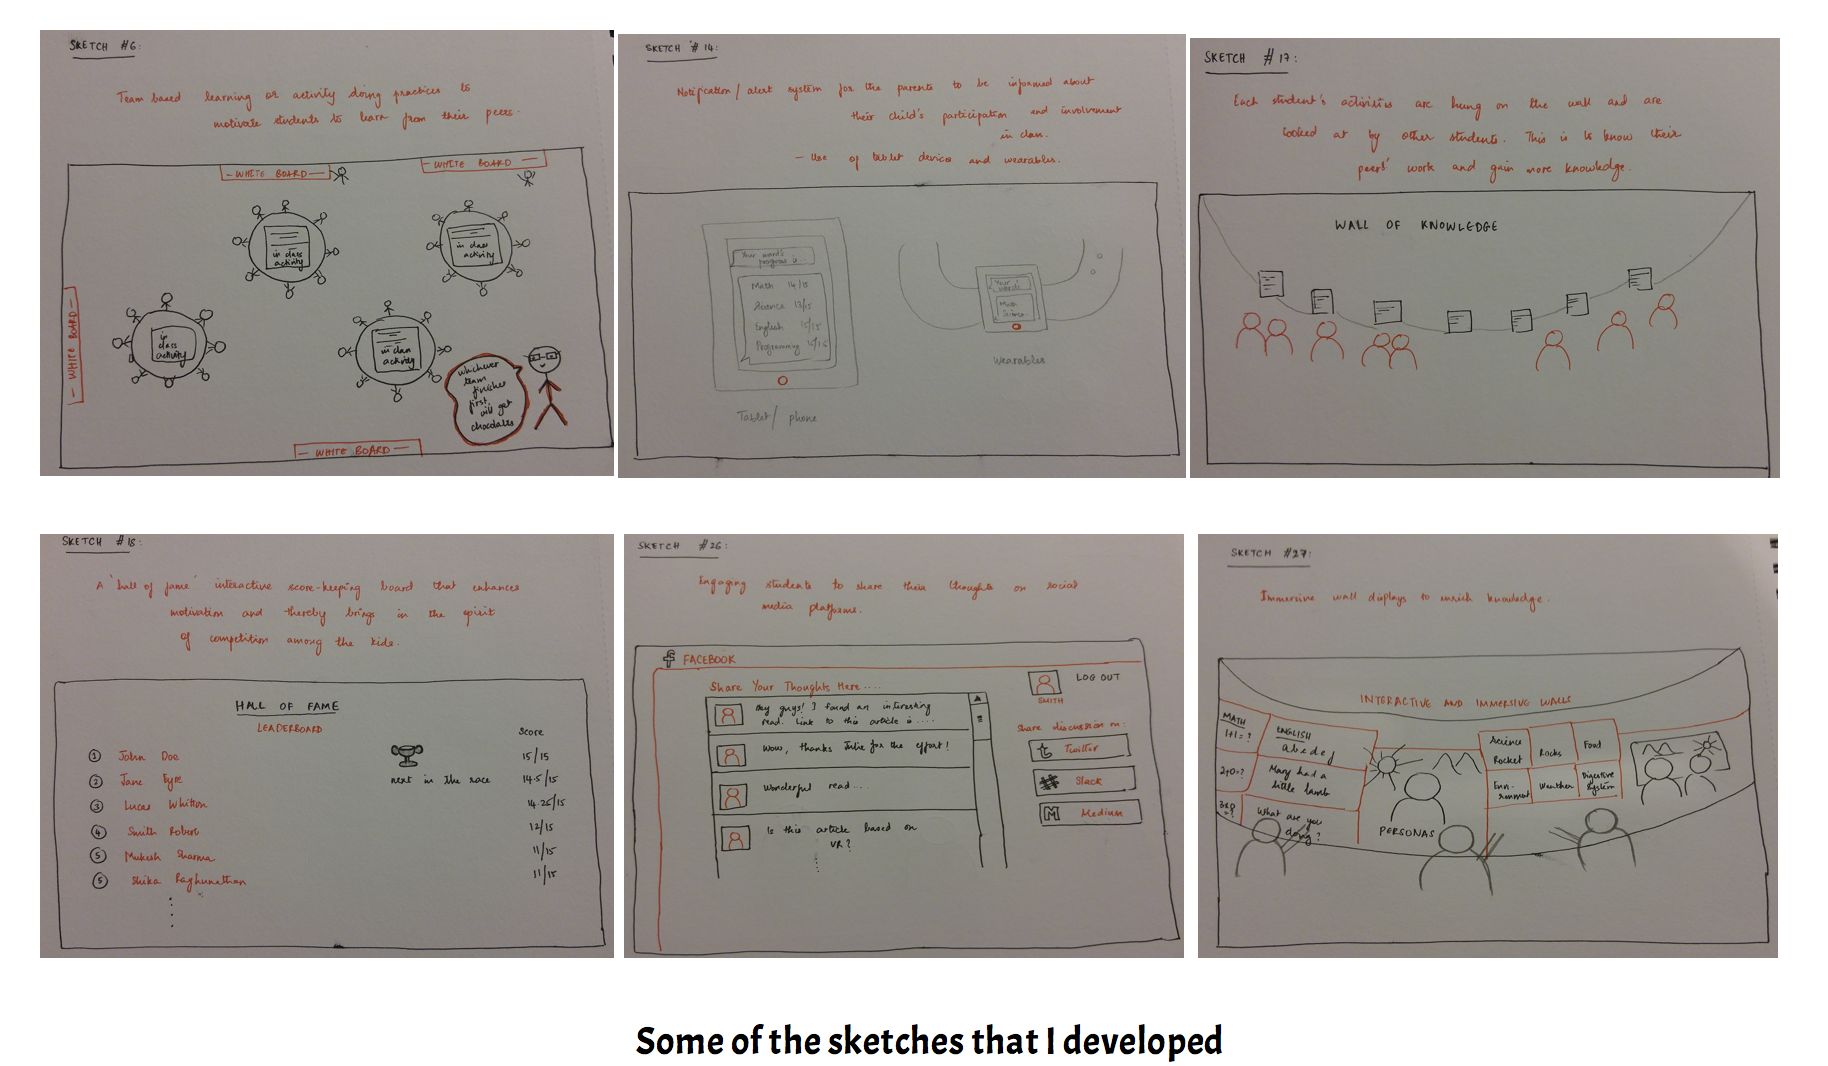 SKETCH #6:
Team based learning or activity doing practices to
motivate students to learn from their peers.
- WHITE BOARD -
- WHITE BOARD -
- WHITE BOARD -
in class
activity
in class
activity
in
class
activity
in class
activity
whichever
team
finishes
first,
will get
chocolates
- WHITE BOARD -
SKETCH #14:
Notification/ alert system for the parents to be informed about
their child's participation and involvement
in class.
- Use of tablet device and wearables.
Your ward's
progress is..
Math 14/15
Science 13/15
English 15/15
Programming
Tablet/ phone
Your
ward's
Math
Science
Wearables
SKETCH #17:
Each student's activities are hung on the wall and are
looked at by other students. This is to know their
peers' work and gain more knowledge.
WALL OF KNOWLEDGE
SKETCH #18:
A 'hall of fame' interactive score-keeping board that enhances
motivation and thereby brings in the spirit
of competition among the kids.
HALL OF FAME
LEADERBOARD
Score
1 John Doe 15/15
2 Jane Eyre next in the race 14.5/15
3 Lucas Whitton 14.25/15
4 Smith Robert 12/15
5 Mukesh Sharma 11/15
5 Shika Raghunathan 11/15
SKETCH #26:
Engaging students to share their thoughts on social
media platforms.
f FACEBOOK
Share Your Thoughts Here....
Hey guys! I found an interesting
read. Link to this article is ....
Wow, thanks Julie for the effort!
Wonderful read....
Is this article based on
VR?
LOG OUT
SMITH
Share discussion on:
t Twitter
# Slack
M Medium
SKETCH #27:
Immersive wall displays to enrich knowledge.
INTERACTIVE AND IMMERSIVE WALLS
MATH
1+1=?
2+0=?
3x0
=?
ENGLISH
a b c d e f
Mary had a
little lamb
What are you
doing?
PERSONAS
Science
Rocket
Rocks
Food
Envi-
ronment
Weather
Digestive
System
Some of the sketches that I developed